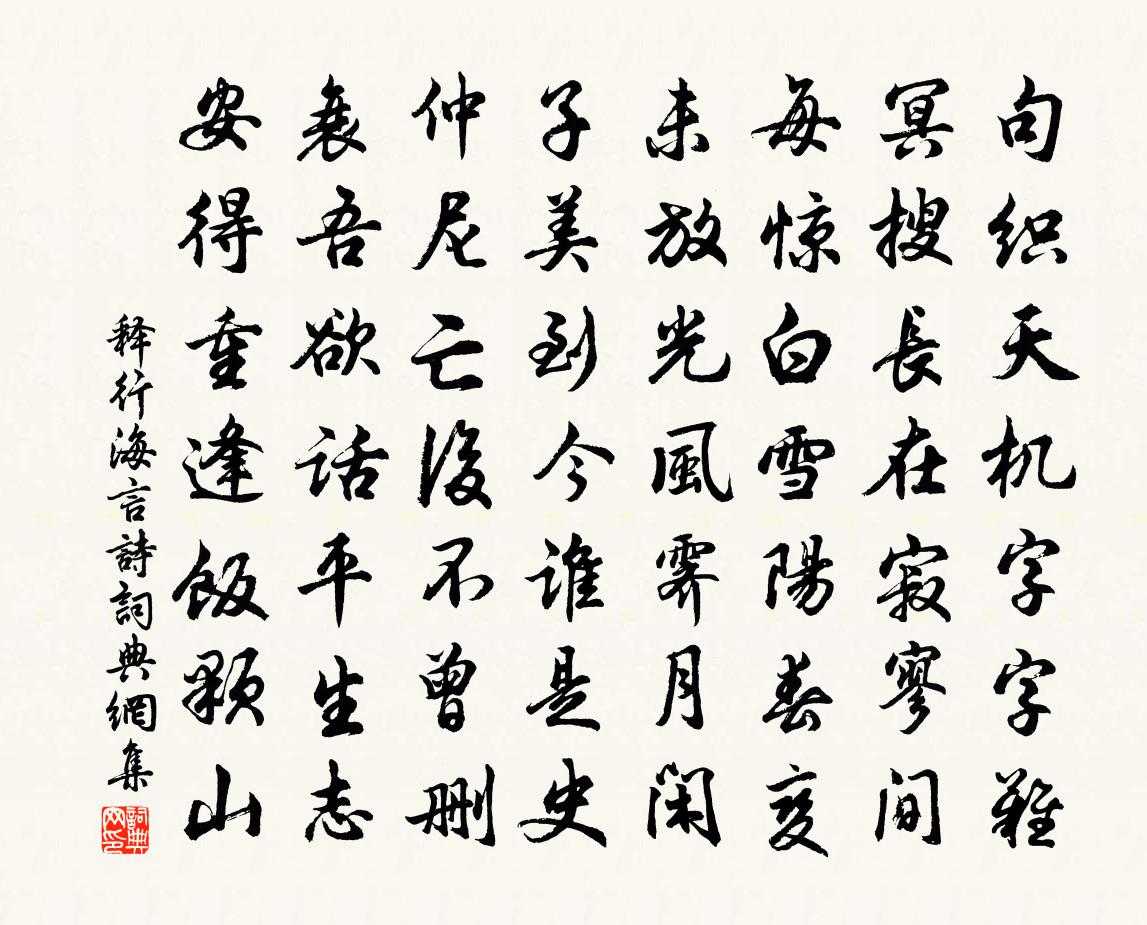 句织天机字字難
冥搜長在寂寥间
每惊白雪陽春变
未放光風霁月闲
子美到今谁是史
仲尼亡後不曾删
衰吾欲话平生志
安得重逢飯颗山
释行海言詩詞典網集
詞典网印